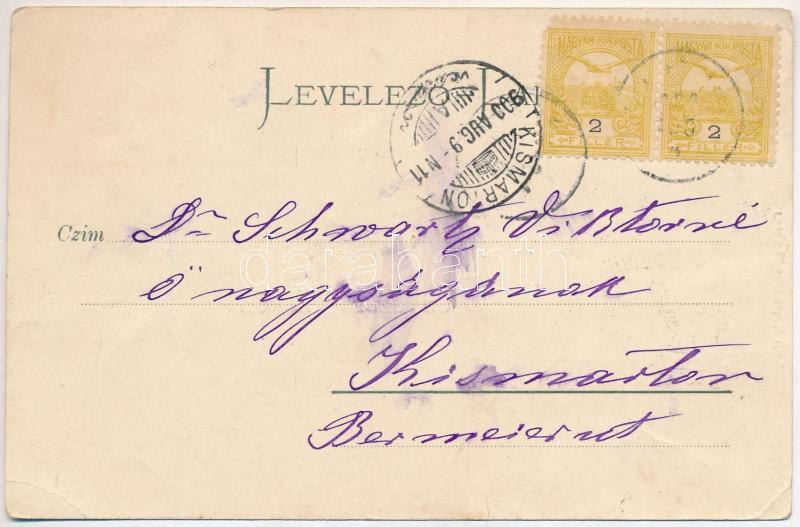 MAGYAR KIR. POSTA MAGYAR KIR. POSTA
2 2
FILLÉR FILLÉR
LEVELEZŐ LAP
KISMARTON
900 AUG. 9 - N11
Czim Dr Schwartz Viktorné
Ő nagyságának
darabanth
Kismarton
Bermeierut